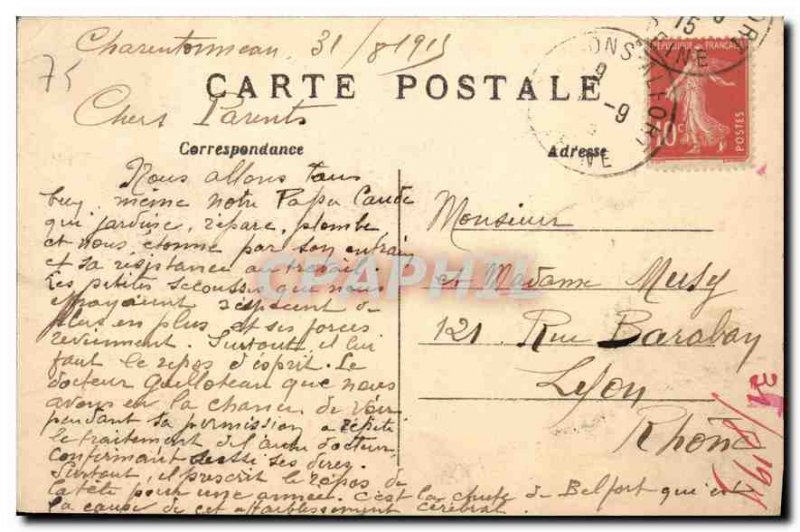 Charentonneau 31/8 1915
75
CARTE POSTALE
Chers Parents
Correspondance
Adresse
REPUBLIQUE FRANCAISE
10c
POSTES
MAISONS-ALFORT
SEINE
Nous allons tous
bien, meme notre Papa Claude
qui jardine, répare, plombe
et nous etonne par son entrain
et sa résistance au travail.
Les petites secousses que nous
effrayaient s'espacent de
plus en plus et ses forces
reviennent. Surtout il lui
faut le repos d'esprit. Le
docteur Guilloteau que nous
avons eu la chance de voir
pendant sa permission a répété
le traitement de l'autre docteur
confirmant aussi ses dires.
Surtout, il prescrit le repos de
la tête pour une année. C'est la chute de Belfort qui est
la cause de cet affaiblissement cérébral.
Monsieur
et Madame Musy
121 Rue Baraban
Lyon
Rhône
31/8 1915
CPAPHIL